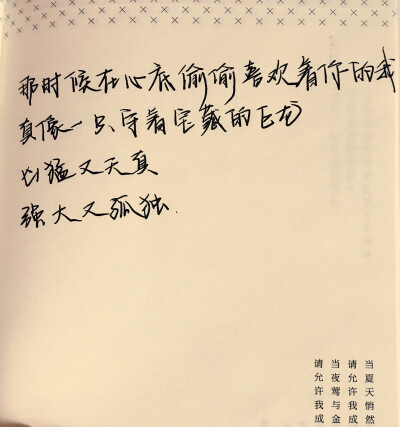 那时候在心底偷偷喜欢着你的我
真像一只守着宝藏的巨龙
凶猛又天真
强大又孤独.
当夏天悄然
请允许我成
当夜莺与金
请允许我成